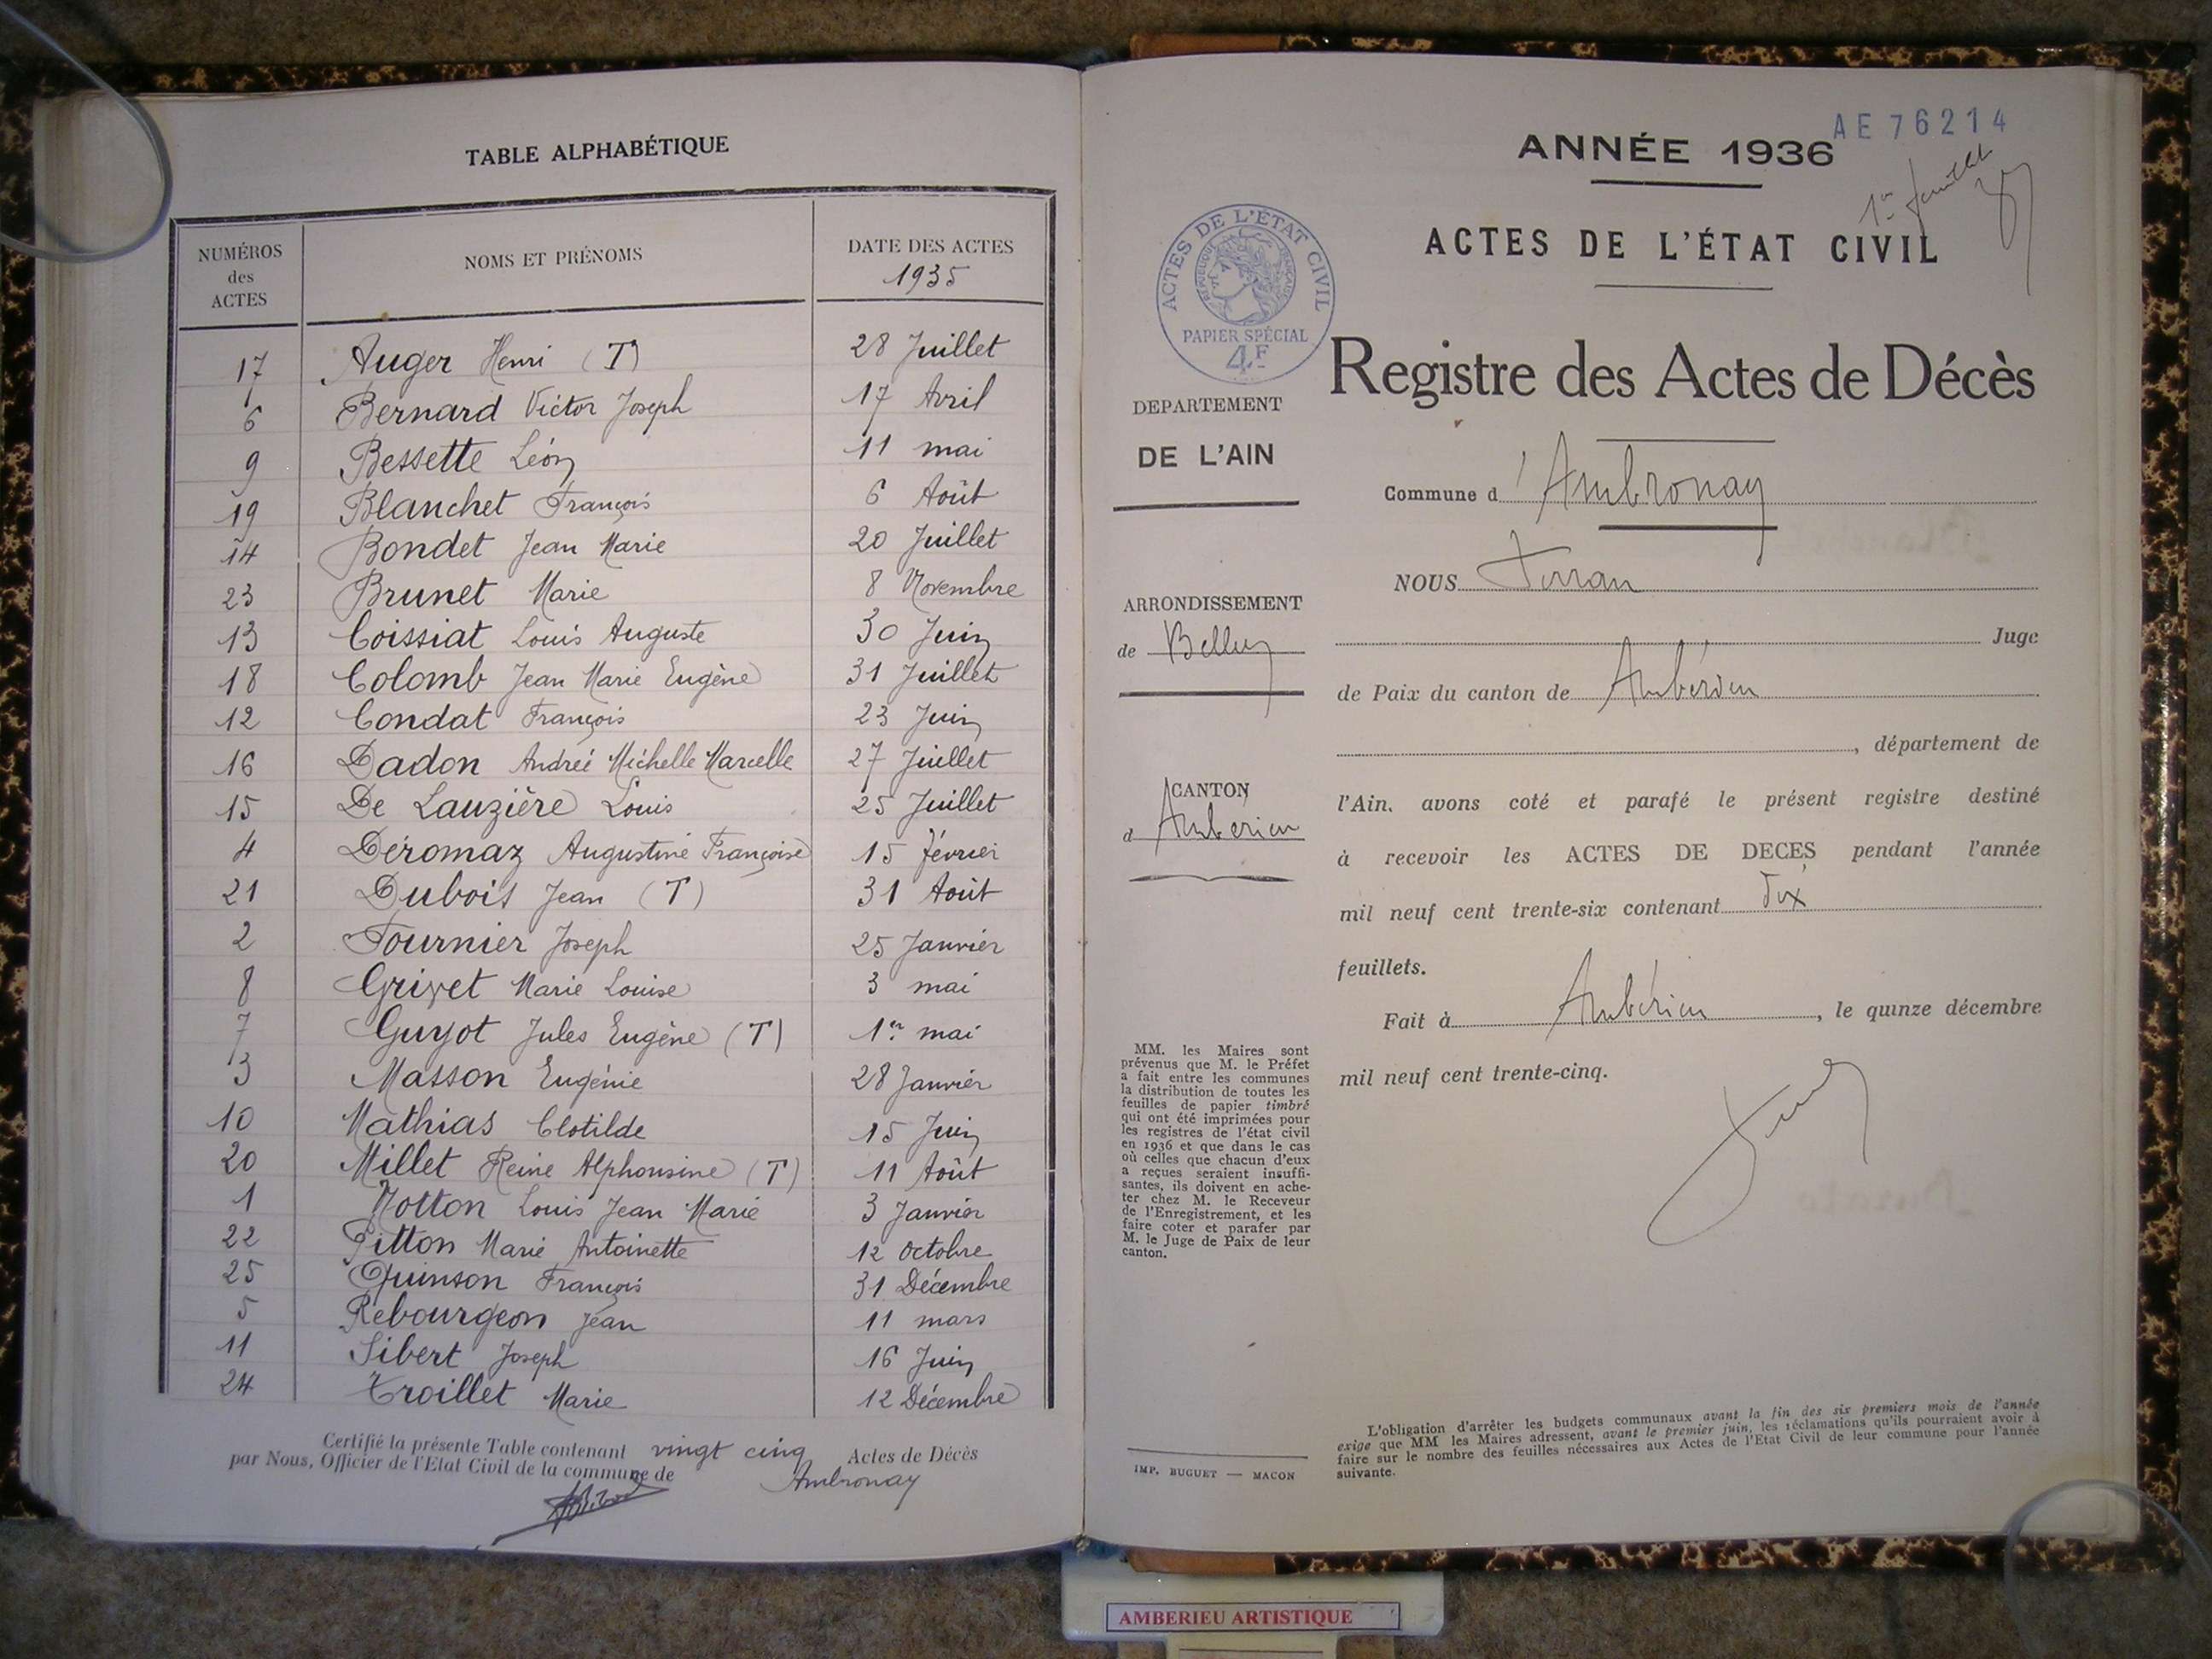 TABLE ALPHABÉTIQUE
NUMÉROS des ACTES
NOMS ET PRÉNOMS
DATE DES ACTES
1935
17 Auger Henri (T) 28 Juillet
6 Bernard Victor Joseph 17 Avril
9 Bessette Léon 11 mai
19 Blanchet François 6 Août
14 Bondet Jean Marie 20 Juillet
23 Brunet Marie 8 Novembre
13 Coissiat Louis Auguste 30 Juin
18 Colomb Jean Marie Eugène 31 Juillet
12 Condat François 23 Juin
16 Dadon Andrée Michelle Marcelle 27 Juillet
15 De Lauzière Louis 25 Juillet
4 Déromaz Augustine Françoise 15 février
21 Dubois Jean (T) 31 Août
2 Fournier Joseph 25 Janvier
8 Grivet Marie Louise 3 mai
7 Guyot Jules Eugène (T) 1er mai
3 Masson Eugénie 28 Janvier
10 Mathias Clotilde 15 Juin
20 Millet Reine Alphonsine (T) 11 Août
1 Notton Louis Jean Marie 3 Janvier
22 Pitton Marie Antoinette 12 Octobre
25 Quinson François 31 Décembre
5 Rebourgeon Jean 11 mars
11 Sibert Joseph 16 Juin
24 Troillet Marie 12 Décembre
Certifié la présente Table contenant vingt cinq Actes de Décès
par Nous, Officier de l'Etat Civil de la commune de Ambronay
AE 76214
ANNÉE 1936
1er feuillet
ACTES DE L'ÉTAT CIVIL
ACTES DE L'ÉTAT CIVIL
RÉPUBLIQUE FRANÇAISE
PAPIER SPÉCIAL
4F
Registre des Actes de Décès
DEPARTEMENT
DE L'AIN
Commune d'Ambronay
NOUS
ARRONDISSEMENT
de Belley
Juge
de Paix du canton de Ambérieu
, département de
CANTON
d Ambérieu
l'Ain, avons coté et parafé le présent registre destiné
à recevoir les ACTES DE DECÈS pendant l'année
mil neuf cent trente-six contenant dix
feuillets.
Fait à Ambérieu, le quinze décembre
mil neuf cent trente-cinq.
MM. les Maires sont
prévenus que M. le Préfet
a fait entre les communes
la distribution de toutes les
feuilles de papier timbré
qui ont été imprimées pour
les registres de l'état civil
en 1936 et que dans le cas
où celles que chacun d'eux
a reçues seraient insuffi-
santes, ils doivent en ache-
ter chez M. le Receveur
de l'Enregistrement, et les
faire coter et parafer par
M. le Juge de Paix de leur
canton.
IMP. BUGUET — MACON
L'obligation d'arrêter les budgets communaux avant la fin des six premiers mois de l'année
exige que MM les Maires adressent, avant le premier juin, les réclamations qu'ils pourraient avoir à
faire sur le nombre des feuilles nécessaires aux Actes de l'Etat Civil de leur commune pour l'année
suivante.
AMBERIEU ARTISTIQUE